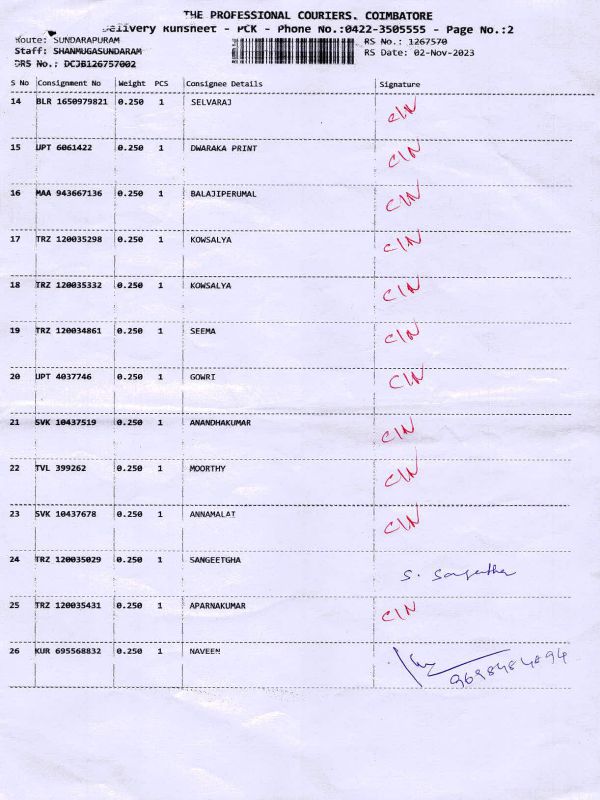 THE PROFESSIONAL COURIERS. COIMBATORE
Delivery Runsheet - PCK - Phone No.:0422-3505555 - Page No.:2
Route: SUNDARAPURAM
RS No.: 1267570
Staff: SHANMUGASUNDARAM
RS Date: 02-Nov-2023
DRS No.: DCJB126757002
S No Consignment No Weight PCS Consignee Details Signature
14 BLR 1650979821 0.250 1 SELVARAJ C/N
15 UPT 6061422 0.250 1 DWARAKA PRINT C/N
16 MAA 943667136 0.250 1 BALAJIPERUMAL C/N
17 TRZ 120035298 0.250 1 KOWSALYA C/N
18 TRZ 120035332 0.250 1 KOWSALYA C/N
19 TRZ 120034861 0.250 1 SEEMA C/N
20 UPT 4037746 0.250 1 GOWRI C/N
21 SVK 10437519 0.250 1 ANANDHAKUMAR C/N
22 TVL 399262 0.250 1 MOORTHY C/N
23 SVK 10437678 0.250 1 ANNAMALAI C/N
24 TRZ 120035029 0.250 1 SANGEETGHA S. Sangeetha
25 TRZ 120035431 0.250 1 APARNAKUMAR C/N
26 KUR 695568832 0.250 1 NAVEEN
9698484894